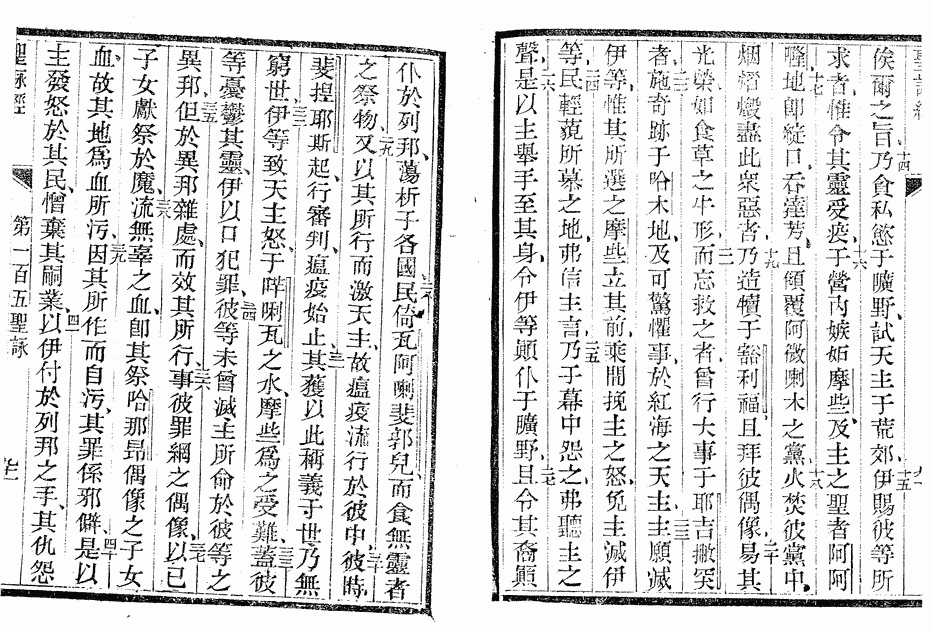 聖詠經
俟爾之旨乃食私慾于曠野試天主于荒郊伊賜彼等所
十四
十五
求者惟令其靈受疫于營內嫉妬摩些及主之聖者阿阿
十六
隆地卽綻口吞達芳且傾覆阿微喇木之黨火焚彼黨中
十七
十八
烟熠燬盡此衆惡者乃造犢于豁利福且拜彼偶像易其
十九
二十
光榮如食草之牛形而忘救之者曾行大事于耶吉撇罙
者施奇跡于哈木地及可驚懼事於紅海之天主主願滅
二三
伊等惟其所選之摩些立其前乘間挽主之怒免主滅伊
等民輕藐所慕之地弗信主言乃于幕中怨之弗聽主之
二四
二五
聲是以主舉手至其身令伊等顚仆于曠野且令其裔顚
二六
二七
仆於列邦蕩析子各國民倚瓦阿喇斐郭兒而食無靈者
二八
之祭物又以其所行而激天主故瘟疫流行於彼中彼時
二九
三十
斐揑耶斯起行審判瘟疫始止其獲以此稱義于世乃無
三一
窮世伊等致天主怒于哶唎瓦之水摩些爲之受難蓋彼
三二
三三
等憂鬱其靈伊以口犯罪彼等未曾滅主所命於彼等之
三四
異邦但於異邦雜處而效其所行事彼罪網之偶像以已
三五
三六
三七
子女獻祭於魔流無辜之血卽其祭哈那昂偶像之子女
三八
血故其地爲血所污因其所作而自污其罪係邪僻是以
三九
四十
主發怒於其民憎棄其嗣業以伊付於列邦之手其仇怨
四一
聖詠經
第一百五聖詠